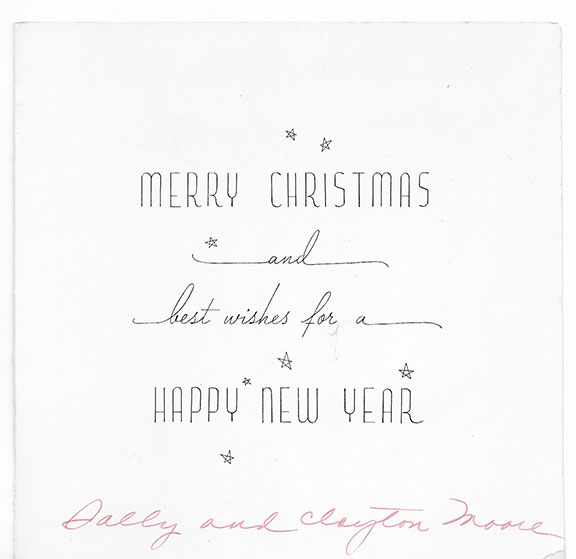 MERRY CHRISTMAS
and
best wishes for a
HAPPY NEW YEAR
Sally and Clayton Moore